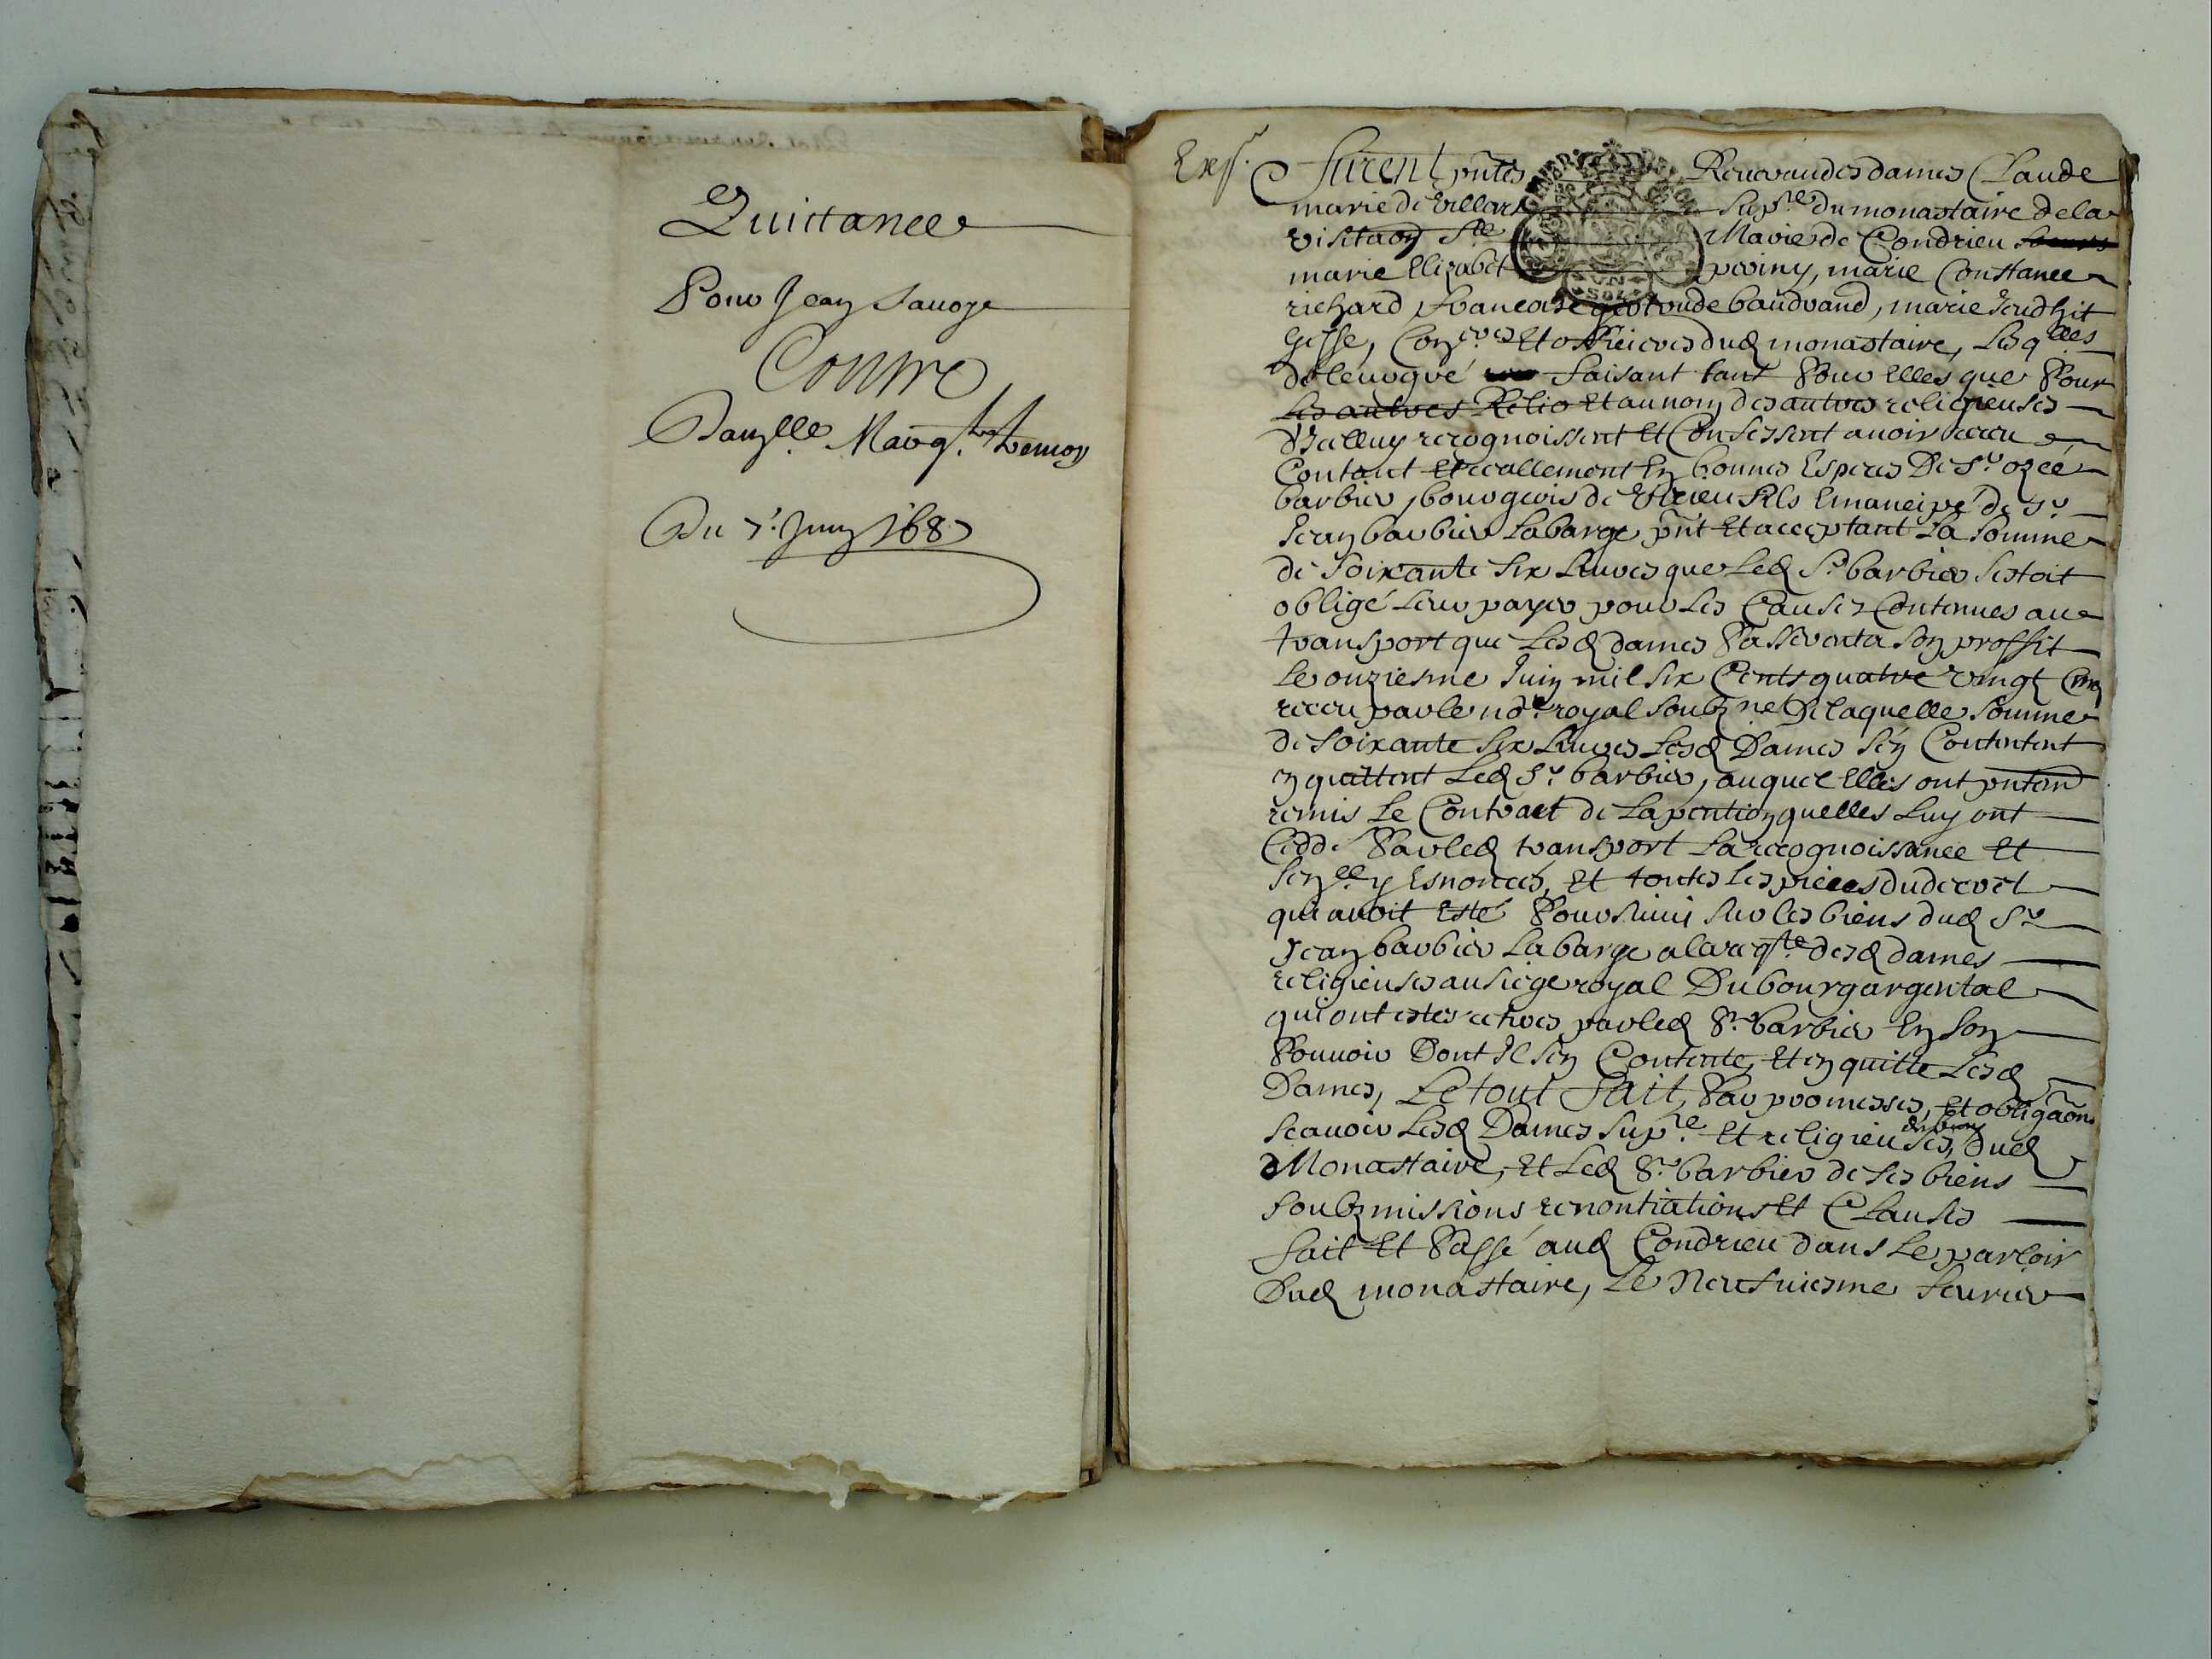 Quittance
Pour Jean Sauoye
Contre
Dam.lle Marg.te
Du 7.e Juin 1687
Exp.
Furent pntes Reuerandes dames Claude
marie de Villars Sup.re du monastaire de la
visitaon Ste Marie de Condrieu
marie Elizabet periny, marie Constance
richard francoise gertrude baudrand, marie Judhit
Gesse, Con.res et officieres dud monastaire, Lesq.lles
de leur gré faisant tant Pour Elles que Pour
Les autres Relio Et au nom des autres religieuses
recognoissent Et Confessent auoir receu
Contant Et reallement En bonnes Especes De Sr ozée
barbier, bourgeois de Virieu fils Emancipé de Sr
Jean barbier Labarge, pnt Et acceptant La Somme
de Soixante Six Liures que Led Sr barbier sestoit
obligé Leur payer pour Les Causes Contenues au
transport que Lesd dames Passerent a Son proffit
Le onziesme Juin mil six Cents quatre vingt Cinq
receu par le no.re royal Soubzne De laquelle Somme
de Soixante Six Liures Lesd Dames Sen Contentent
en quittent Led Sr barbier, auquel Elles ont
remis Le Contract de La pention quelles Luy ont
Ceddé Par led transport La recognoissance Et
Sen.ce y Esnoncés, Et toutes Les pieces du decret
qui avoit Esté Poursuiui sur les biens dud Sr
Jean barbier Labarge a la req.te desd dames
religieuses au siege royal Du bourgargental
qui ont estes retirés par led Sr barbier En Son
Pouuoir Dont Il sen Contente, Et en quitte Lesd
Dames, Le tout fait, Par promesses, Et obligaons
Scauoir Lesd Dames Sup.re Et religieuses, des biens dud
Monastaire, Et Led Sr barbier de ses biens
soubzmissions renontiations Et Clauses
fait Et Passé aud Condrieu dans Le parloir
Dud monastaire, Le Neufuiesme feurier